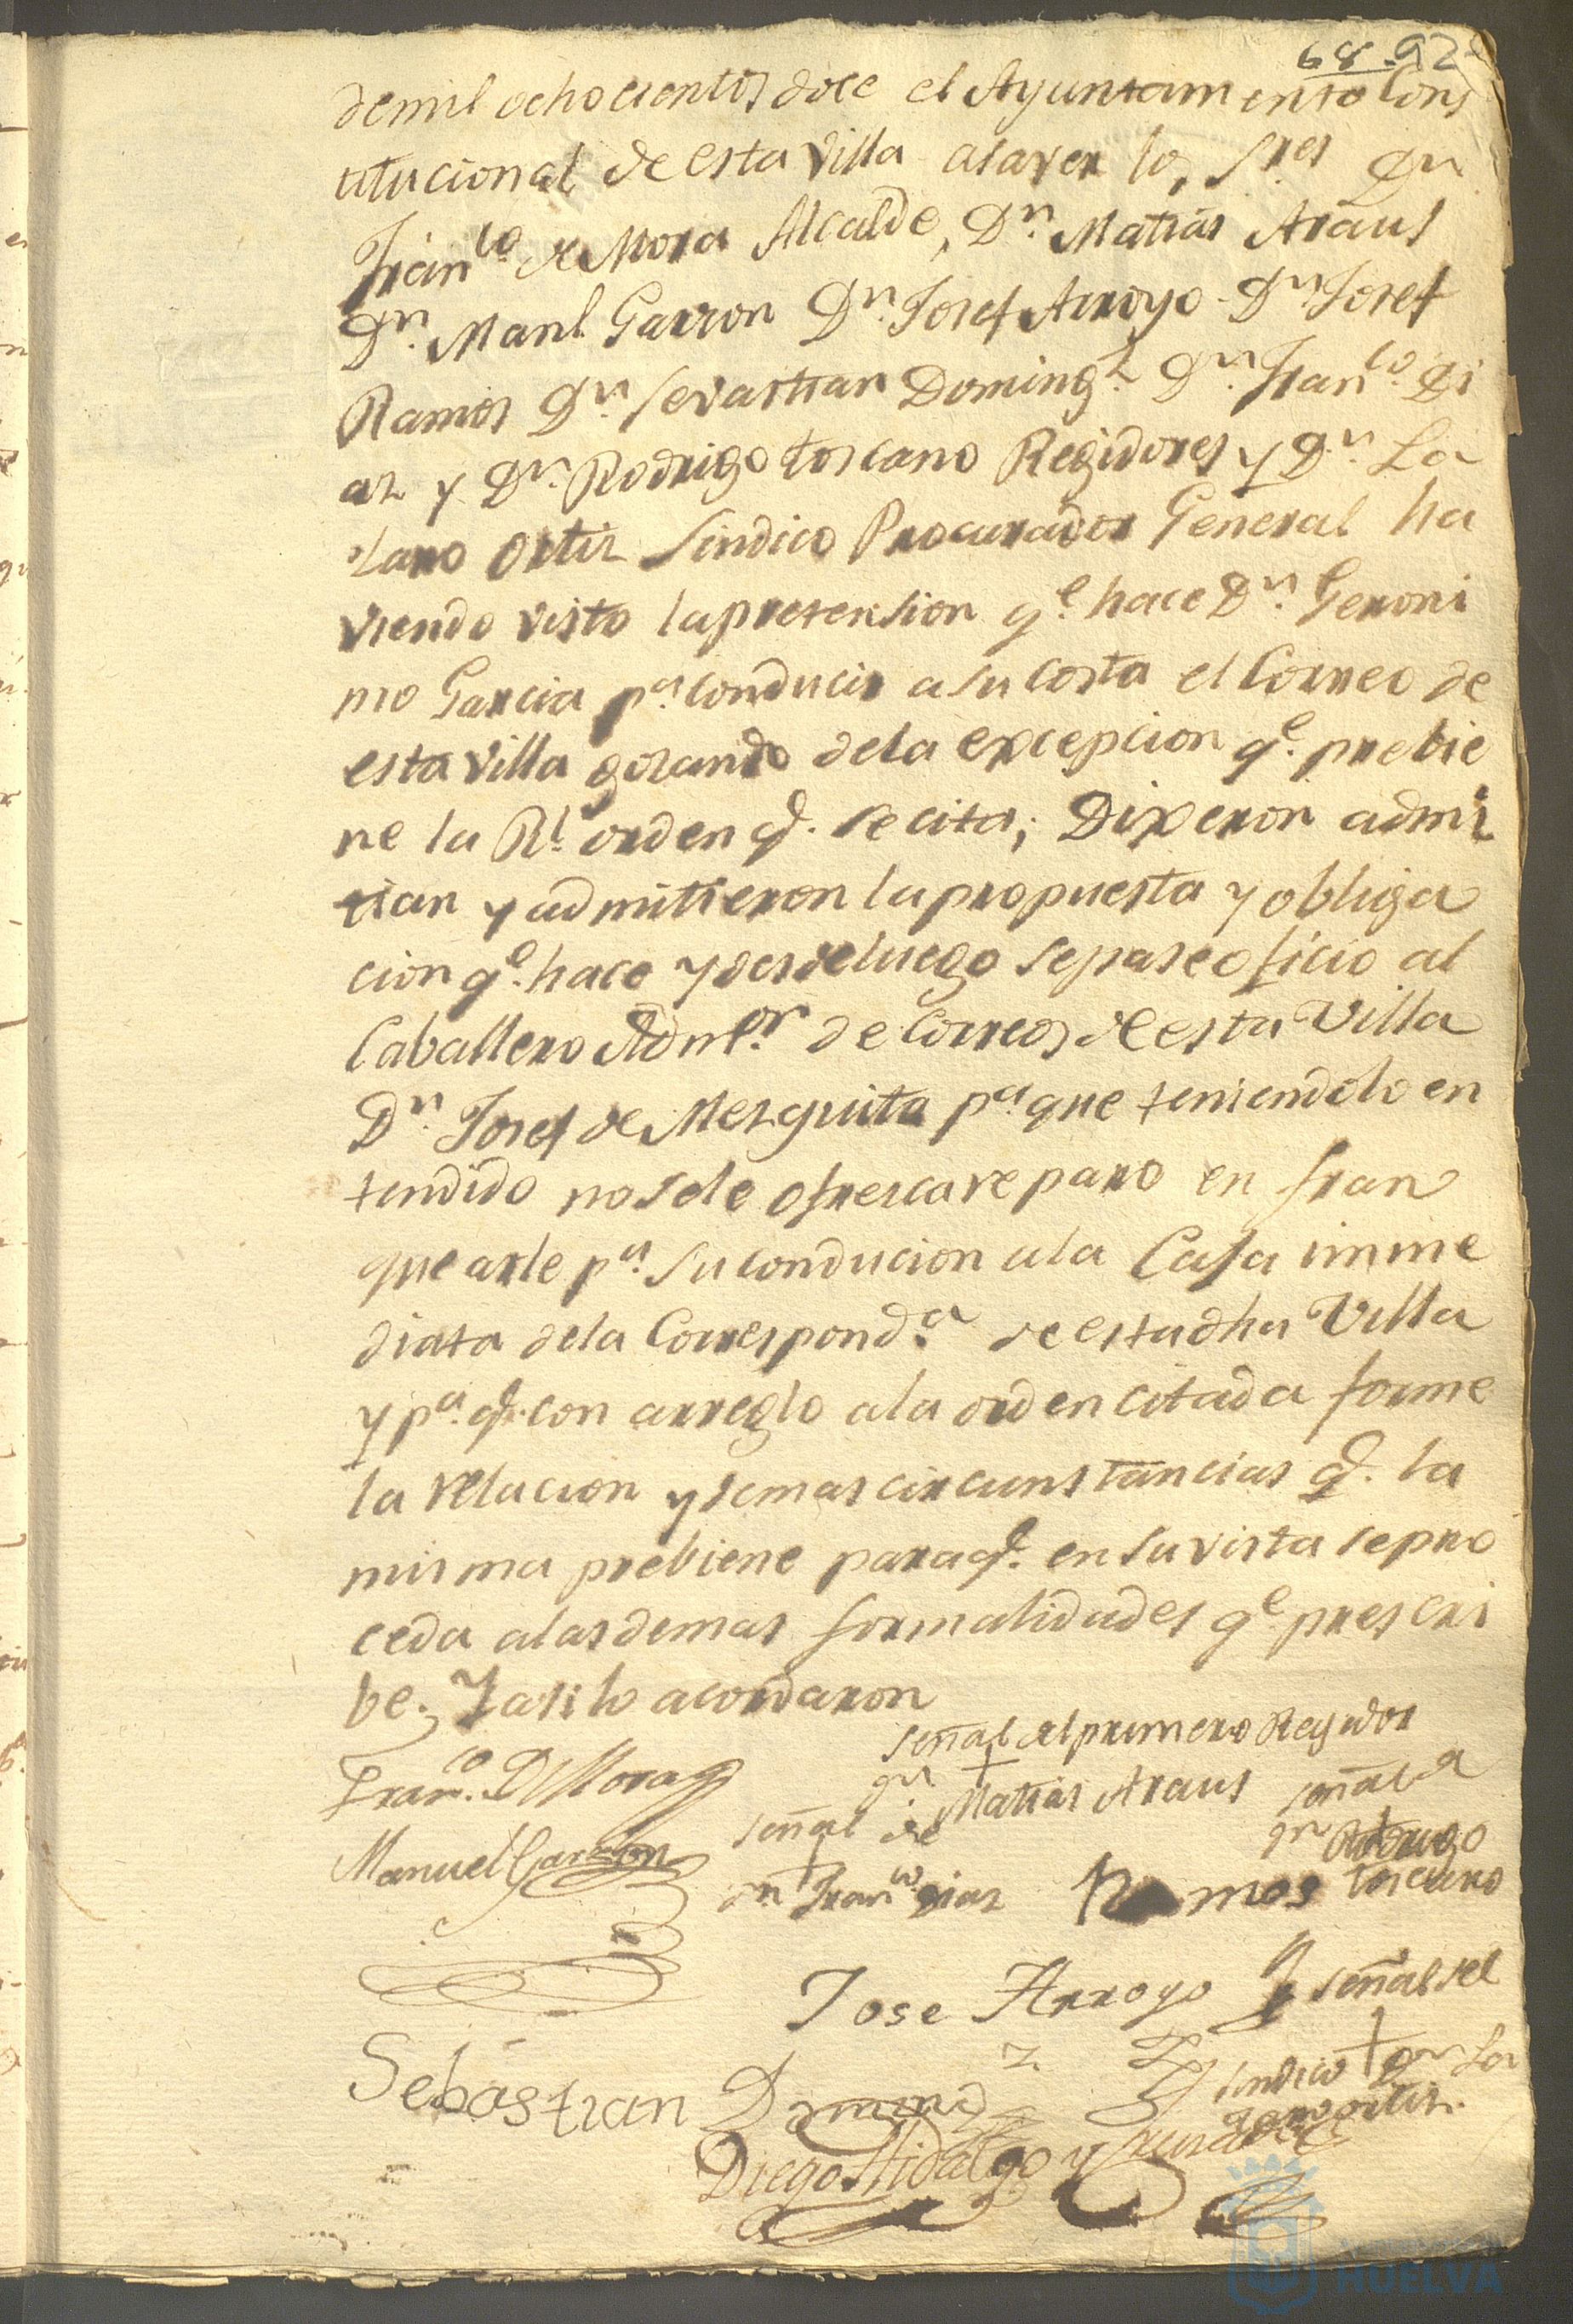 68-92
de mil ochocientos doce el Ayuntamiento Cons
titucional de esta Villa asaver los Sres Dn
Franco de Mora Alcalde, Dn. Matias Araus
Dn. Manl. Garzon Dn. Josef Arroyo - Dn Josef
Ramos Dn Sevastian Domingz Dn. Franco. Di
az y Dn. Rodrigo toscano Regidores y Dn. La
zaro Ortiz Sindico Procurador General ha
viendo visto la pretension qe. hace Dn. Geroni
mo Garcia pa. conducir a su costa el Correo de
esta Villa gozando de la excepcion qe. prebie
ne la Rl. orden q. se cita; Dixeron admi
tian y admitieron la propuesta y obliga
cion qe. hace y desde luego se pase oficio al
Caballero Admor. de Correos de esta Villa
Dn. Josef de Mezquita pa. que teniendolo en
tendido no se le ofresca reparo en fran
quearle pa. su conducion a la Caja imme
diata de la Correspond.a de esta dha Villa
y pa. q. con arreglo a la orden citada forme
la relacion y demas circunstancias q. la
misma prebiene para q. en su vista se pro
ceda a las demas formalidades qe prescri
be. Y asi lo acordaron
señal del primero Regidor
Franco. D Mora
Dn + Matias Araus
señal de
Manuel Garzon
señal de
Dn Rodrigo
toscano
Dn Franco. Dias
Ramos
Jose Arroyo
señal del
Sindico + Dn La
zaro ortiz.
Sebastian Domingz
Diego Hidalgo y
HUELVA